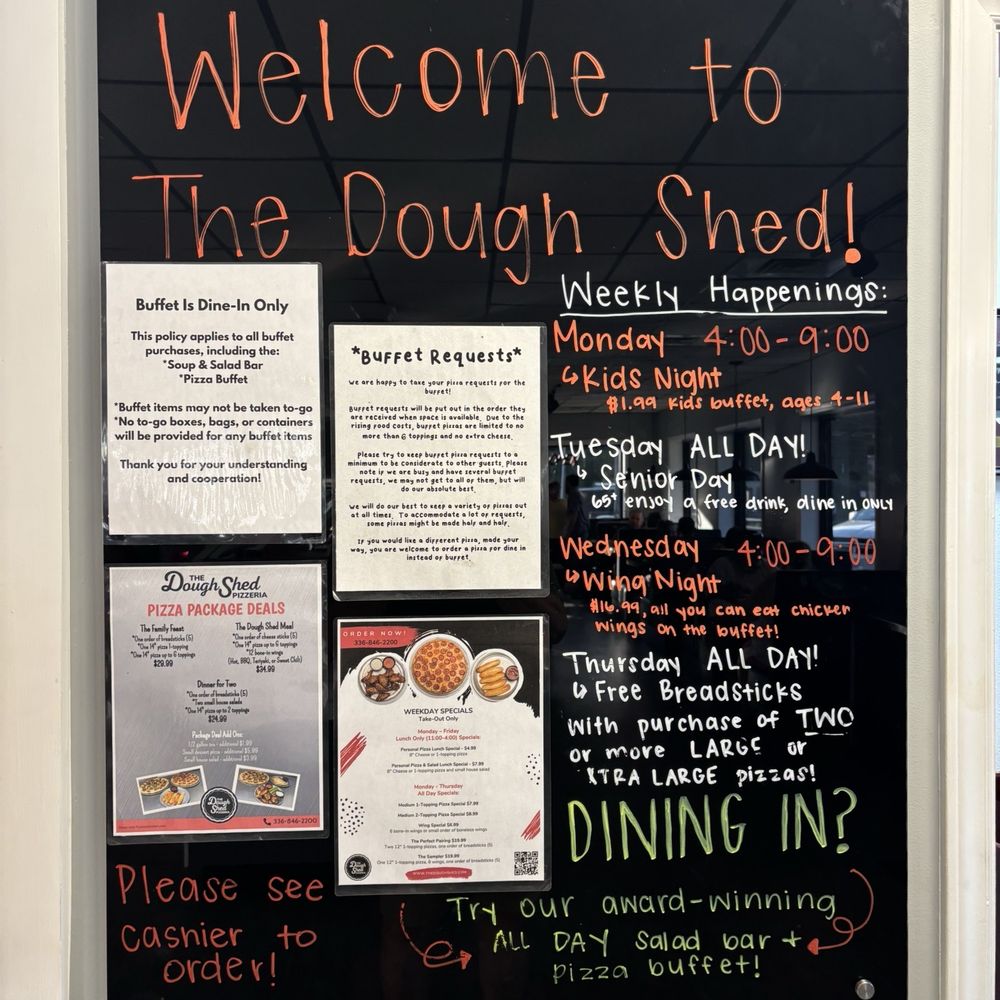 Welcome to
The Dough Shed!
Buffet Is Dine-In Only
This policy applies to all buffet
purchases, including the:
*Soup & Salad Bar
*Pizza Buffet
*Buffet items may not be taken to-go
*No to-go boxes, bags, or containers
will be provided for any buffet items
Thank you for your understanding
and cooperation!
*Buffet Requests*
We are happy to take your pizza requests for the
buffet!
Buffet requests will be put out in the order they
are received when space is available. Due to the
rising food costs, buffet pizzas are limited to no
more than 6 toppings and no extra cheese.
Please try to keep buffet pizza requests to a
minimum to be considerate to other guests. Please
note if we are busy and have several buffet
requests, we may not get to all of them, but will
do our absolute best.
We will do our best to keep a variety of pizzas out
at all times. To accommodate a lot of requests,
some pizzas might be made half and half.
If you would like a different pizza, made your
way, you are welcome to order a pizza for dine in
instead of buffet.
THE
Dough Shed
PIZZERIA
PIZZA PACKAGE DEALS
The Family Feast
*One order of breadsticks (5)
*One 14" pizza 1-topping
*One 14" pizza up to 6 toppings
$29.99
The Dough Shed Meal
*One order of cheese sticks (5)
*One 14" pizza up to 6 toppings
*12 bone-in wings
(Hot, BBQ, Teriyaki, or Sweet Chili)
$34.99
Dinner for Two
*One order of breadsticks (5)
*Two small house salads
*One 14" pizza up to 2 toppings
$24.99
Package Deal Add Ons:
1/2 gallon tea - additional $1.99
Small dessert pizza - additional $5.99
Small house salad - additional $3.99
336-846-2200
ORDER NOW!
336-846-2200
WEEKDAY SPECIALS
Take-Out Only
Monday - Friday
Lunch Only (11:00-4:00) Specials:
Personal Pizza Lunch Special - $4.99
8" Cheese or 1-topping pizza
Personal Pizza & Salad Lunch Special - $7.99
8" Cheese or 1-topping pizza and small house salad
Monday - Thursday
All Day Specials:
Medium 1-Topping Pizza Special $7.99
Medium 2-Topping Pizza Special $8.99
Wing Special $6.89
6 bone-in wings or small order of boneless wings
The Perfect Pairing $19.99
Two 12" 1-topping pizzas, one order of breadsticks (5)
The Sampler $19.99
One 12" 1-topping pizza, 6 wings, one order of breadsticks (5)
Weekly Happenings:
Monday 4:00-9:00
↳Kids Night
$1.99 kids buffet, ages 4-11
Tuesday ALL DAY!
↳ Senior Day
65+ enjoy a free drink, dine in ONLY
Wednesday 4:00-9:00
↳Wing Night
$16.99, all you can eat chicken
wings on the buffet!
Thursday ALL DAY!
↳ Free Breadsticks
with purchase of TWO
or more LARGE or
XTRA LARGE pizzas!
DINING IN?
Try our award-winning
ALL DAY salad bar +
pizza buffet!
Please see
cashier to
order!